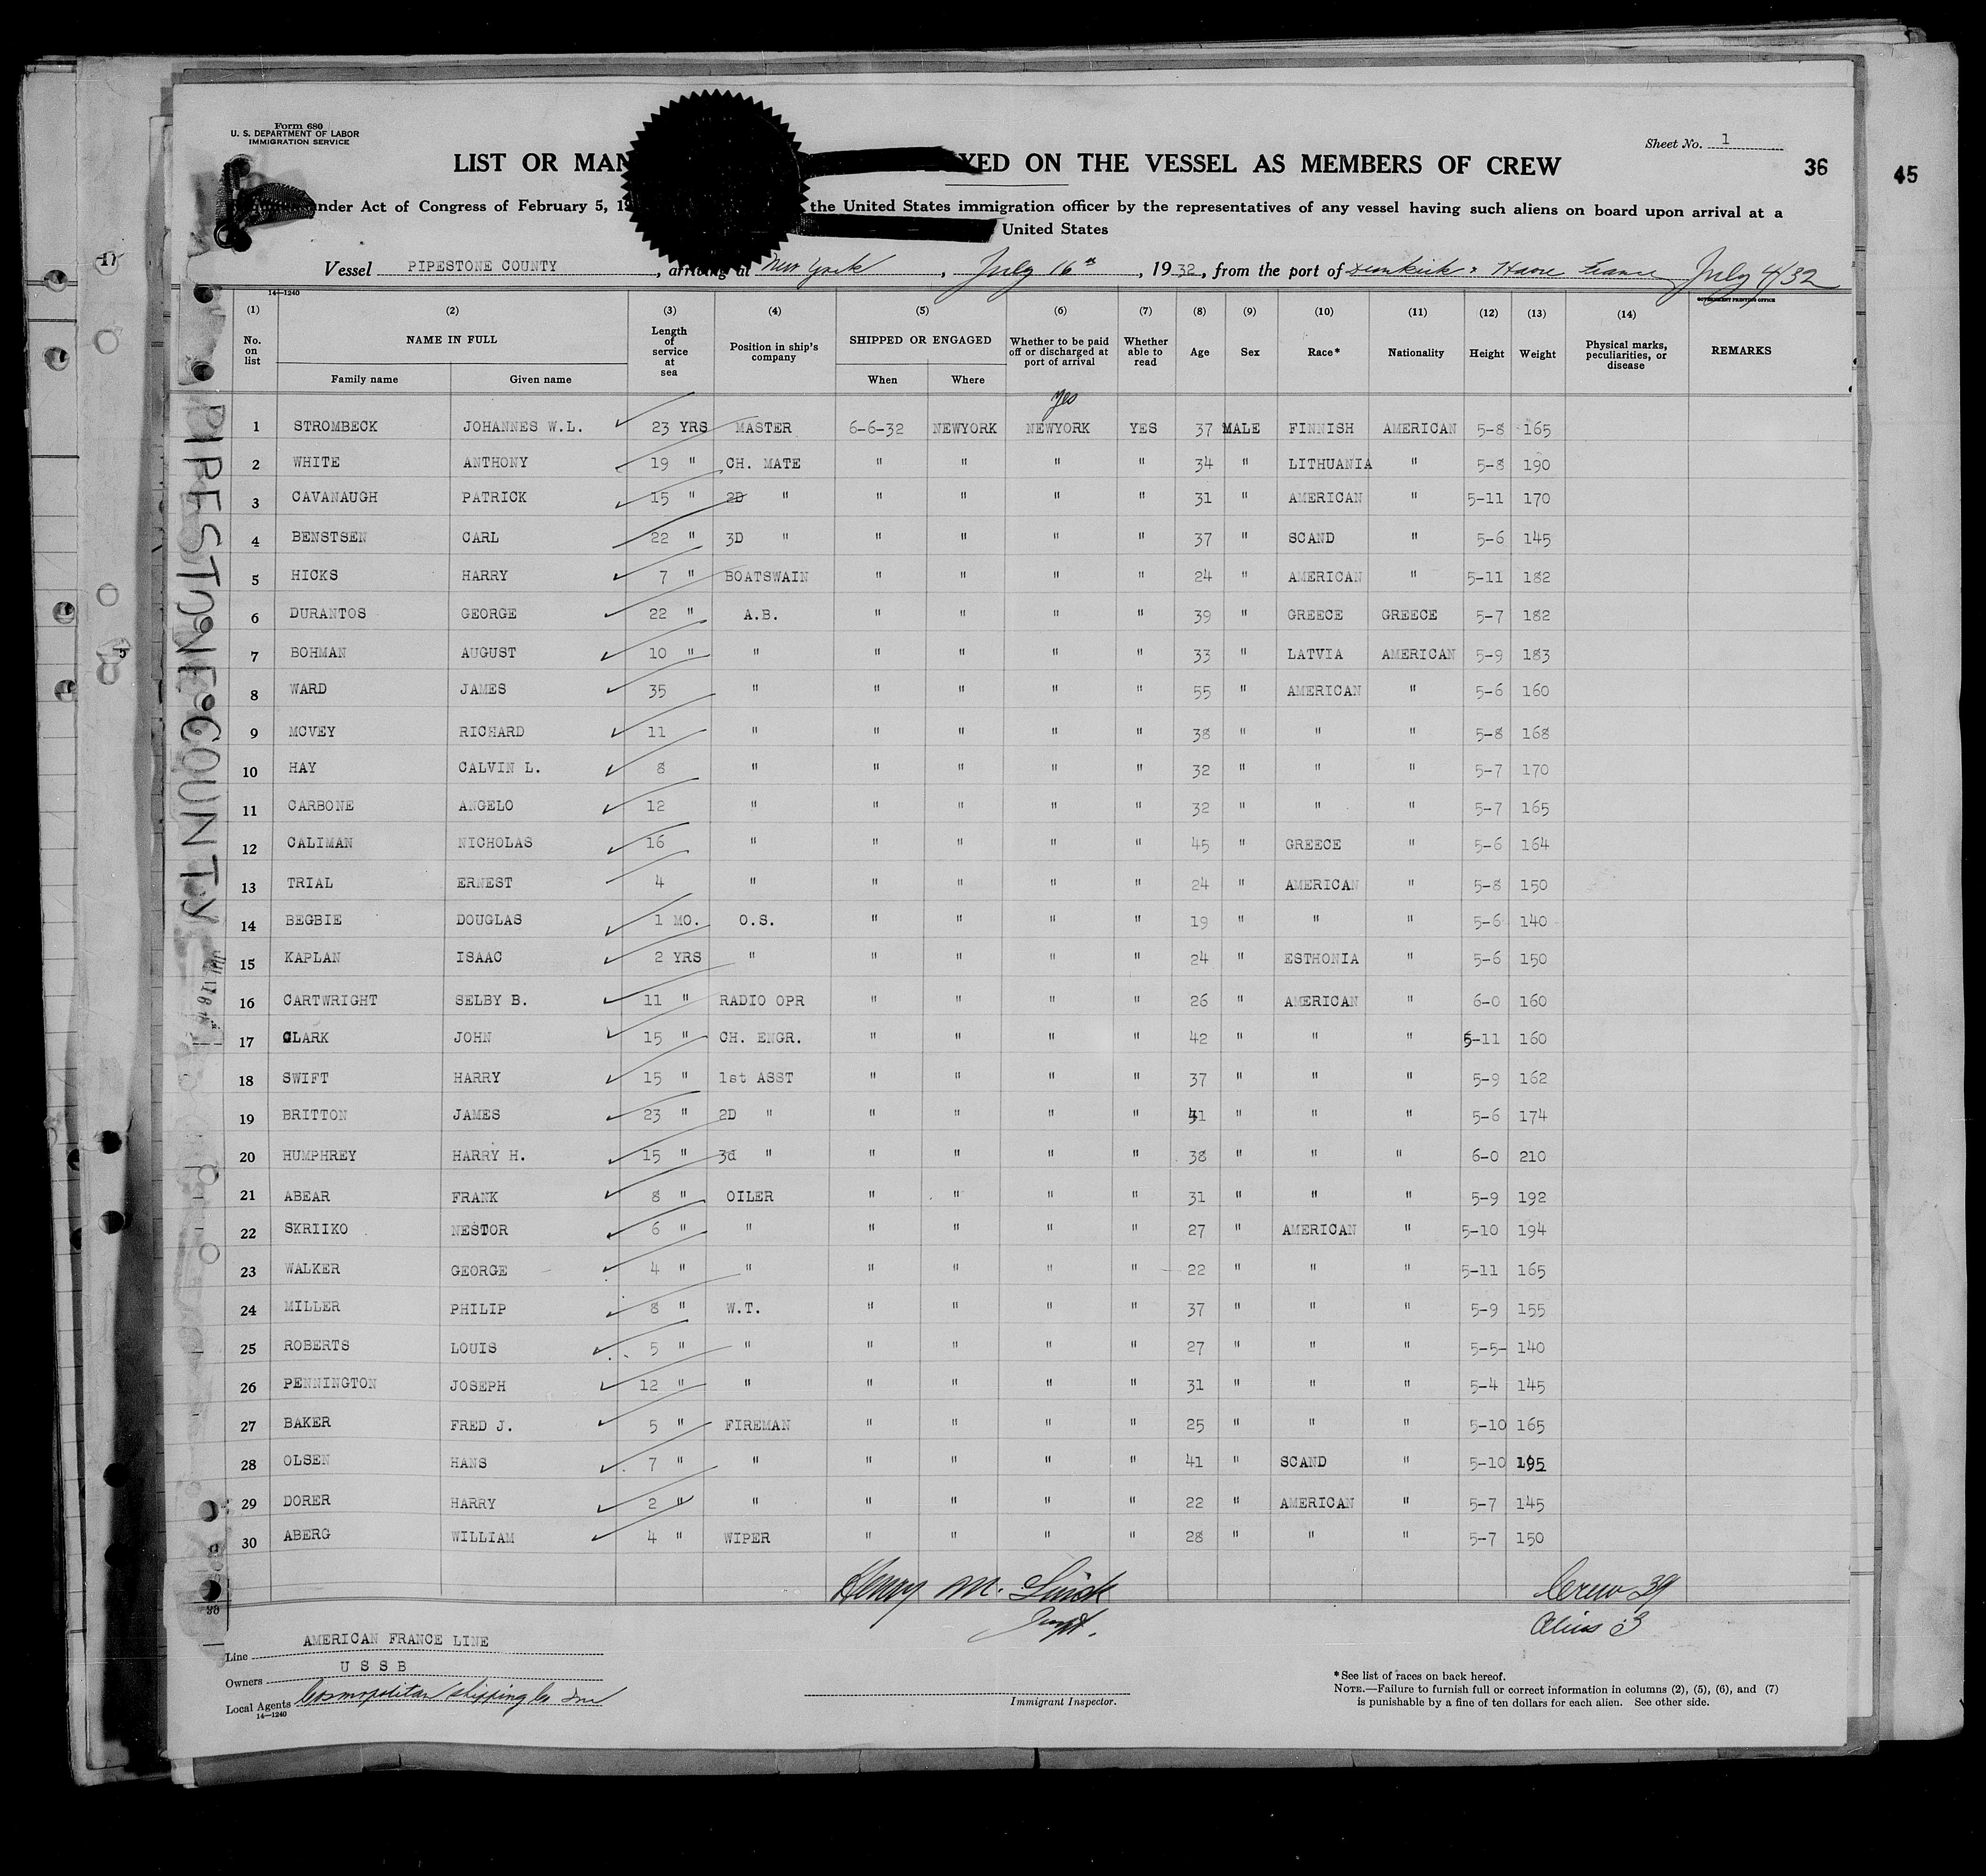 Form 680
U. S. DEPARTMENT OF LABOR
IMMIGRATION SERVICE
Sheet No. 1
LIST OR MAN YED ON THE VESSEL AS MEMBERS OF CREW
36
45
under Act of Congress of February 5, 19 the United States immigration officer by the representatives of any vessel having such aliens on board upon arrival at a
United States
Vessel PIPESTONE COUNTY, arriving at New York, July 16th, 1932, from the port of Dunkirk & Havre France July 4/32
14—1240
GOVERNMENT PRINTING OFFICE
(1) (2) (3) (4) (5) (6) (7) (8) (9) (10) (11) (12) (13) (14)
No. on list NAME IN FULL Length of service at sea Position in ship's company SHIPPED OR ENGAGED Whether to be paid off or discharged at port of arrival Whether able to read Age Sex Race* Nationality Height Weight Physical marks, peculiarities, or disease REMARKS
Family name Given name When Where
yes
1 STROMBECK JOHANNES W.L. 23 YRS MASTER 6-6-32 NEWYORK NEWYORK YES 37 MALE FINNISH AMERICAN 5-8 165
2 WHITE ANTHONY 19 " CH. MATE " " " " 34 " LITHUANIA " 5-8 190
3 CAVANAUGH PATRICK 15 " 2D " " " " " 31 " AMERICAN " 5-11 170
4 BENSTSEN CARL 22 " 3D " " " " " 37 " SCAND " 5-6 145
5 HICKS HARRY 7 " BOATSWAIN " " " " 24 " AMERICAN " 5-11 182
6 DURANTOS GEORGE 22 " A.B. " " " " 39 " GREECE GREECE 5-7 182
7 BOHMAN AUGUST 10 " " " " " " 33 " LATVIA AMERICAN 5-9 183
8 WARD JAMES 35 " " " " " 55 " AMERICAN " 5-6 160
9 MCVEY RICHARD 11 " " " " " 38 " " " 5-8 168
10 HAY CALVIN L. 8 " " " " " 32 " " " 5-7 170
11 CARBONE ANGELO 12 " " " " " 32 " " " 5-7 165
12 CALIMAN NICHOLAS 16 " " " " " 45 " GREECE " 5-6 164
13 TRIAL ERNEST 4 " " " " " 24 " AMERICAN " 5-8 150
14 BEGBIE DOUGLAS 1 MO. O.S. " " " " 19 " " " 5-6 140
15 KAPLAN ISAAC 2 YRS " " " " " 24 " ESTHONIA " 5-6 150
16 CARTWRIGHT SELBY B. 11 " RADIO OPR " " " " 26 " AMERICAN " 6-0 160
17 CLARK JOHN 15 " CH. ENGR. " " " " 42 " " " 5-11 160
18 SWIFT HARRY 15 " 1st ASST " " " " 37 " " " 5-9 162
19 BRITTON JAMES 23 " 2D " " " " " 41 " " " 5-6 174
20 HUMPHREY HARRY H. 15 " 3d " " " " " 38 " " " 6-0 210
21 ABEAR FRANK 8 " OILER " " " " 31 " " " 5-9 192
22 SKRIIKO NESTOR 6 " " " " " " 27 " AMERICAN " 5-10 194
23 WALKER GEORGE 4 " " " " " " 22 " " " 5-11 165
24 MILLER PHILIP 8 " W.T. " " " " 37 " " " 5-9 155
25 ROBERTS LOUIS 5 " " " " " " 27 " " " 5-5- 140
26 PENNINGTON JOSEPH 12 " " " " " " 31 " " " 5-4 145
27 BAKER FRED J. 5 " FIREMAN " " " " 25 " " " 5-10 165
28 OLSEN HANS 7 " " " " " " 41 " SCAND " 5-10 195
29 DORER HARRY 2 " " " " " " 22 " AMERICAN " 5-7 145
30 ABERG WILLIAM 4 " WIPER " " " " 28 " " " 5-7 150
PIPESTONE COUNTY
Henry M.
Inspt.
Crew 39
Aliens 3
Line AMERICAN FRANCE LINE
Owners U S S B
Local Agents Cosmopolitan Shipping Co Inc
14—1240
Immigrant Inspector.
*See list of races on back hereof.
NOTE.—Failure to furnish full or correct information in columns (2), (5), (6), and (7)
is punishable by a fine of ten dollars for each alien. See other side.